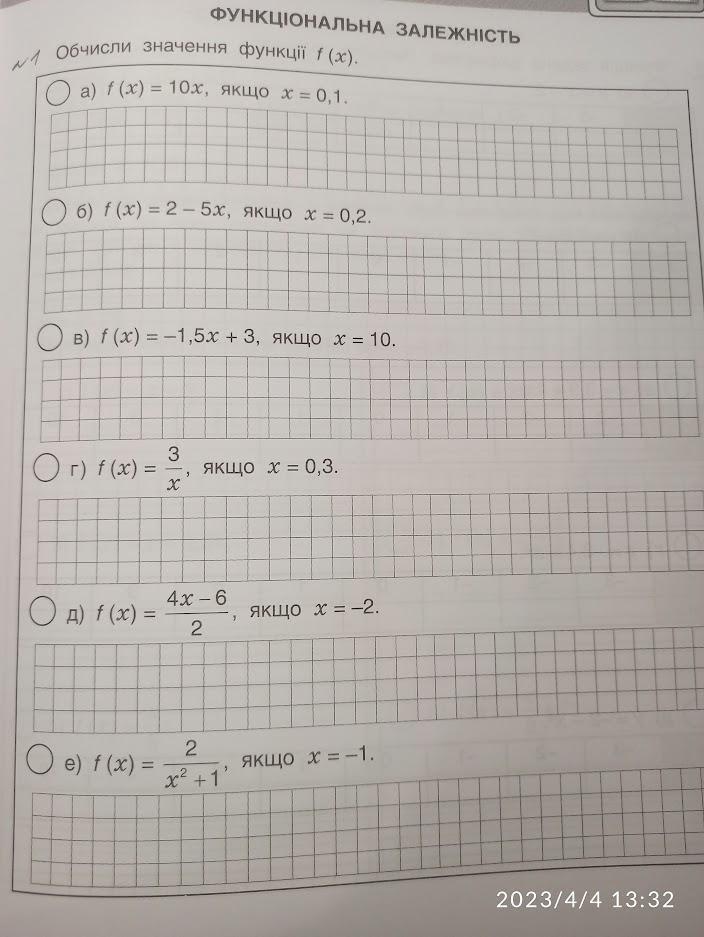 ФУНКЦІОНАЛЬНА ЗАЛЕЖНІСТЬ
№1 Обчисли значення функції f (x).
а) f (x) = 10x, якщо x = 0,1.
б) f (x) = 2 – 5x, якщо x = 0,2.
в) f (x) = –1,5x + 3, якщо x = 10.
г) f (x) = 3/x, якщо x = 0,3.
д) f (x) = (4x – 6)/2, якщо x = –2.
е) f (x) = 2/(x² + 1), якщо x = –1.
2023/4/4 13:32